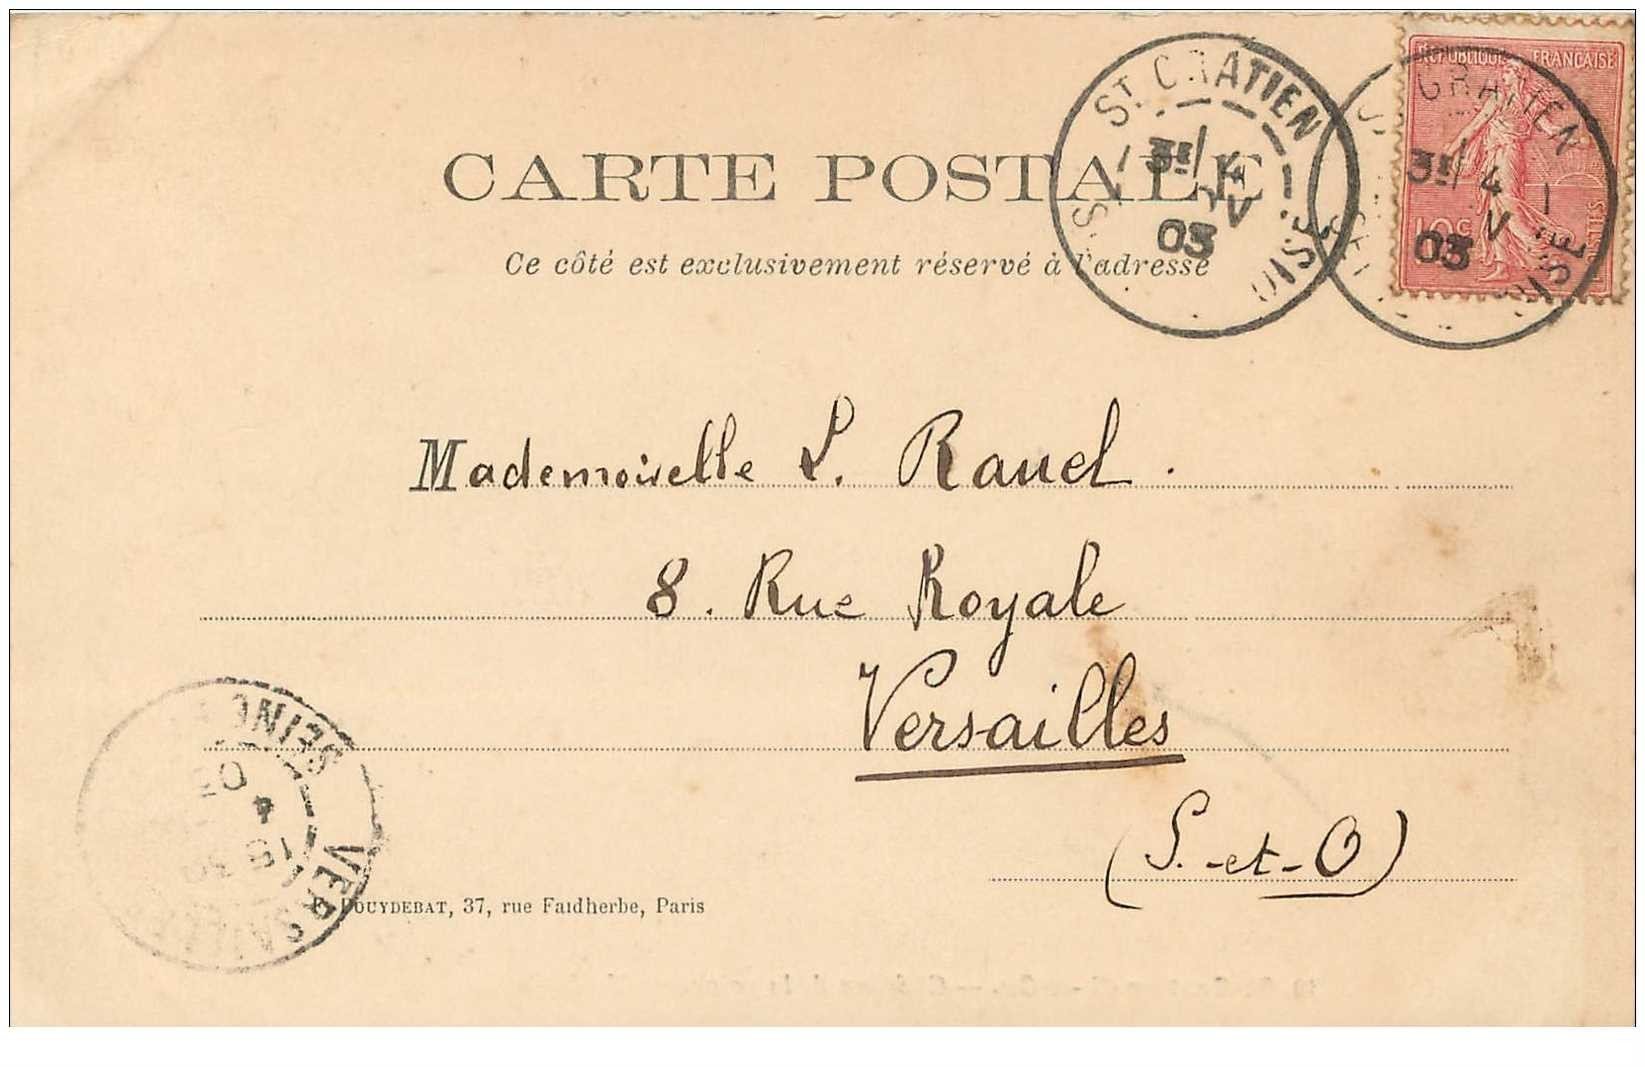 RÉPUBLIQUE FRANÇAISE
10c
POSTES
ST GRATIEN
3E/ 4
V
03
OISE
ST GRATIEN
3E/ 4
V
03
OISE
CARTE POSTALE
Ce côté est exclusivement réservé à l'adresse
Mademoiselle L. Rauel.
8. Rue Royale
Versailles
(S.-et-O)
VERSAILLES
4
SEINE
F. POUYDEBAT, 37, rue Faidherbe, Paris